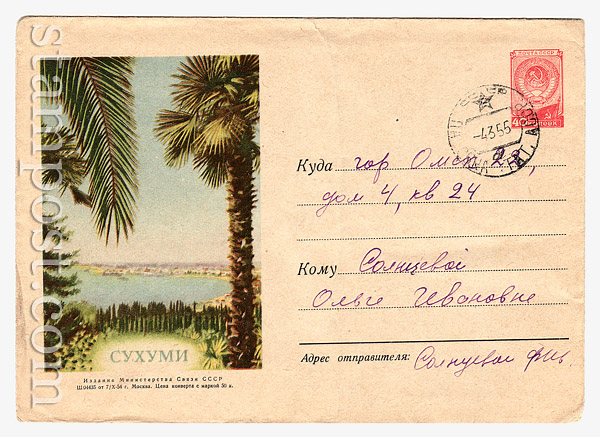 ПОЧТА СССР
40
-4 3 55
Куда гор Омск 22,
дом 4, кв 24
Кому Солнцевой
Ольге Ивановне
Адрес отправителя: Солнцевой
СУХУМИ
Издание Министерства Связи СССР
Ш 04435 от 7/X-54 г. Москва. Цена конверта с маркой 50 к.
stampost.com
stampost.com